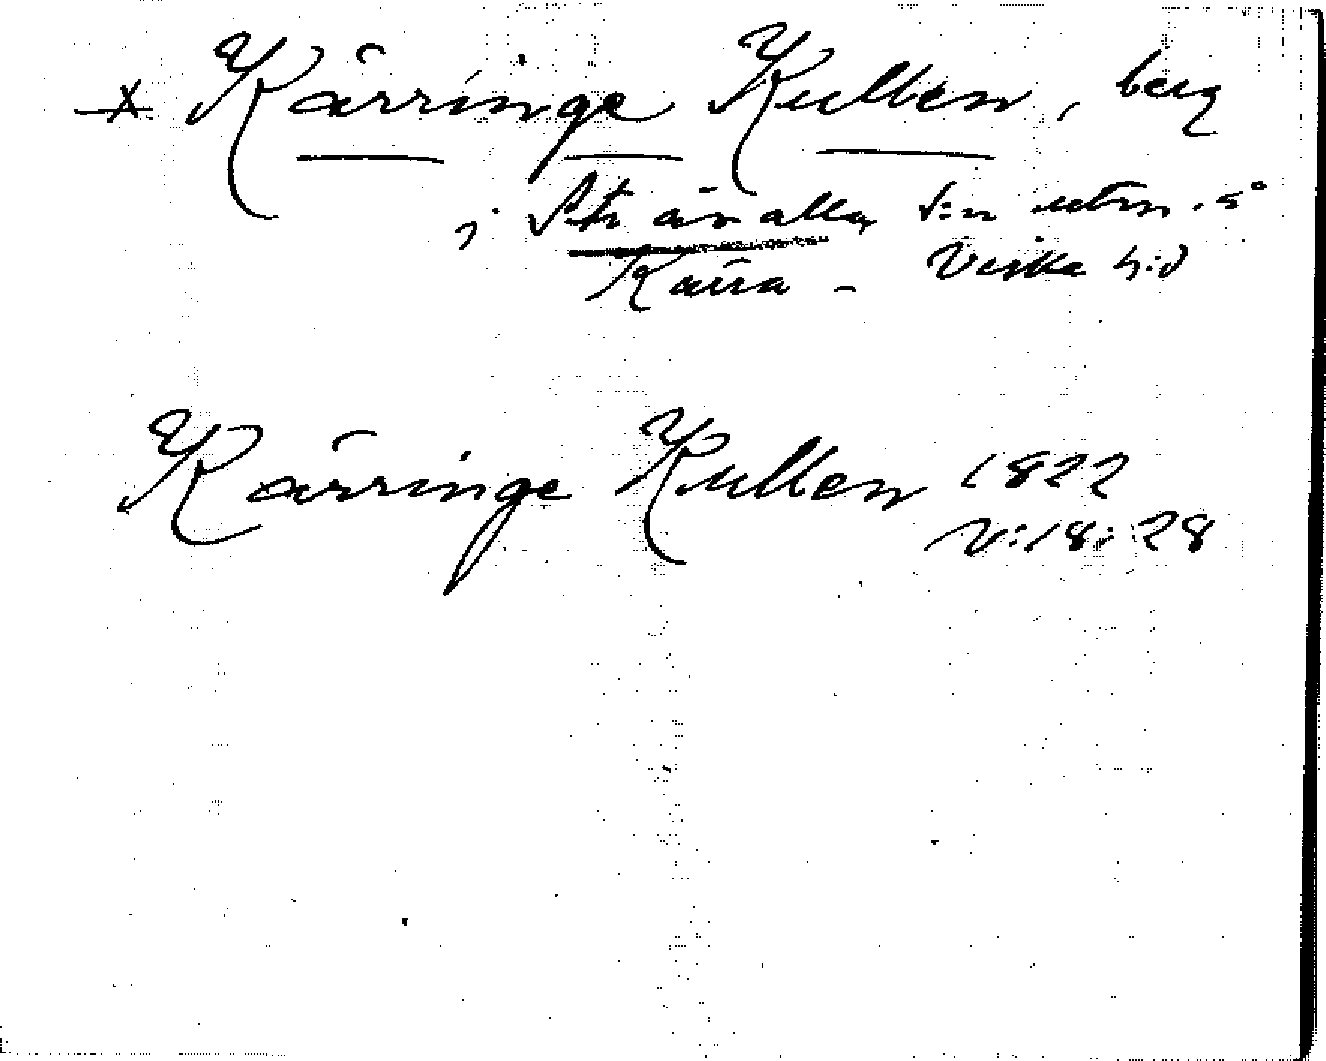 x Kärringe Kullen, berg
i Stränvalla s:n utm. å
Kärra - Viske h:d
Kärringe Kullen 1822
V:18:28